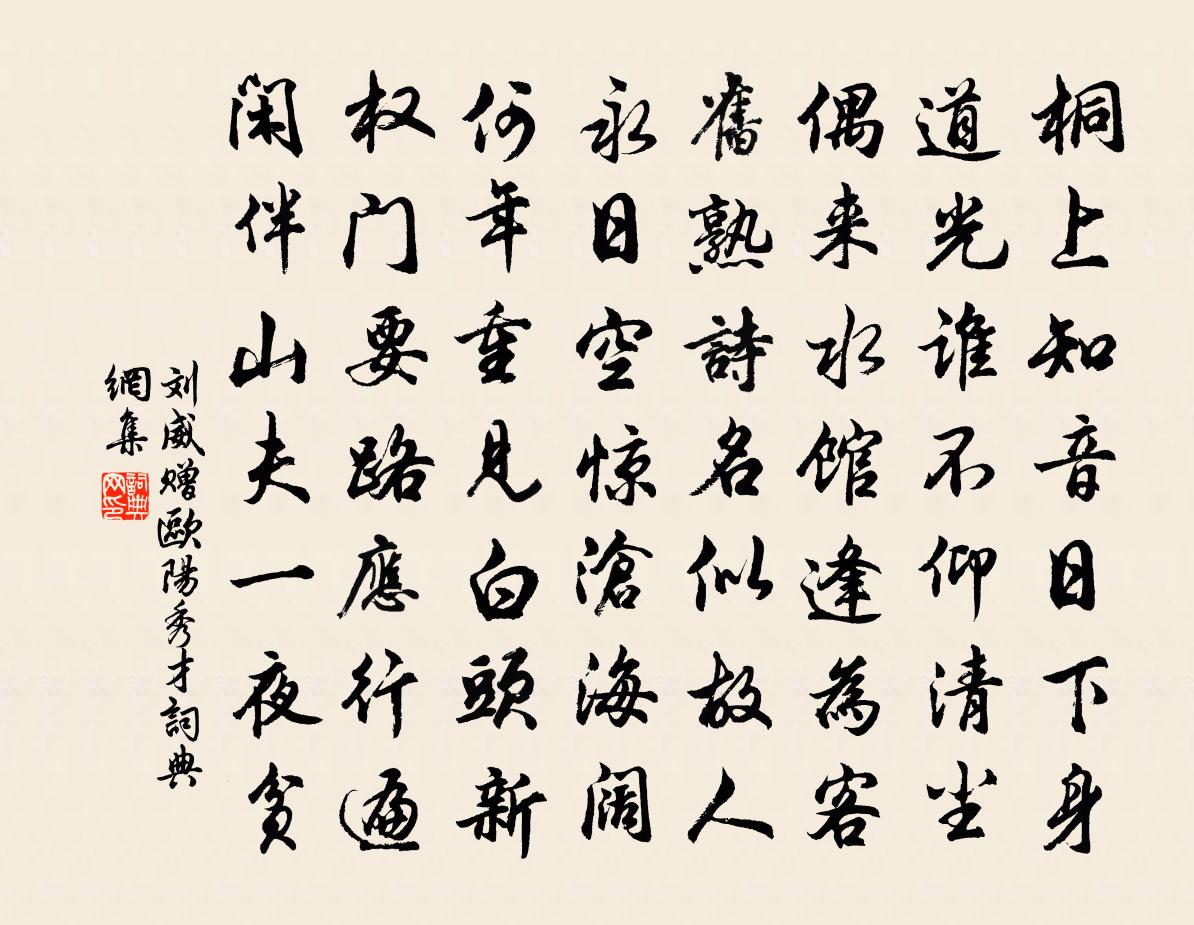 桐上知音日下身
道光谁不仰清尘
偶来水馆逢為客
舊熟詩名似故人
永日空惊滄海阔
何年重見白頭新
权门要路應行遍
闲伴山夫一夜贫
刘威赠歐陽秀才詞典
網集
詞典网印